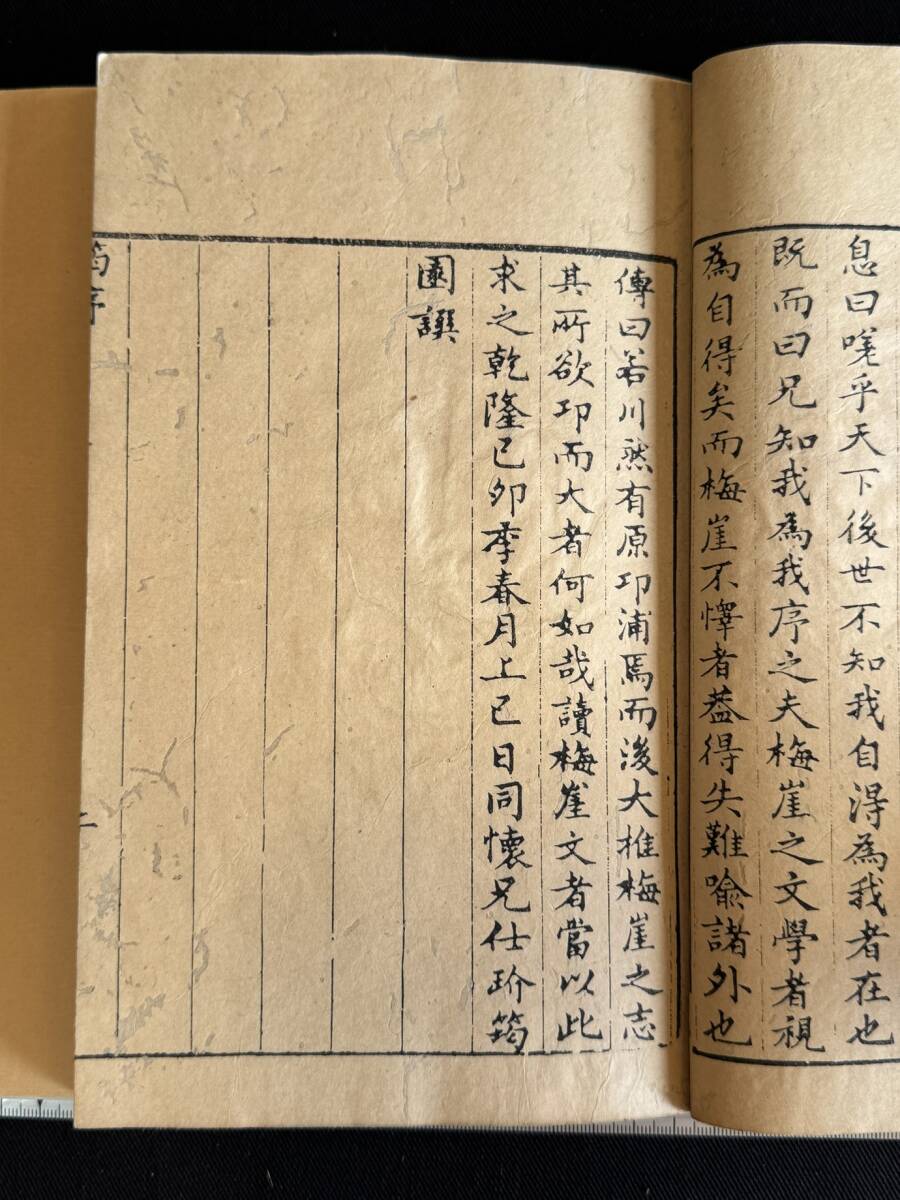 息曰嘆乎天下後世不知我自得為我者在也
既而曰兄知我為我序之夫梅崖之文學者視
為自得矣而梅崖不懌者葢得失難喻諸外也
傳曰若川然有原卭浦焉而後大推梅崖之志
其所欲卭而大者何如哉讀梅崖文者當以此
求之乾隆已卯季春月上巳日同懷兄仕玠筠
園譔
筠序
二